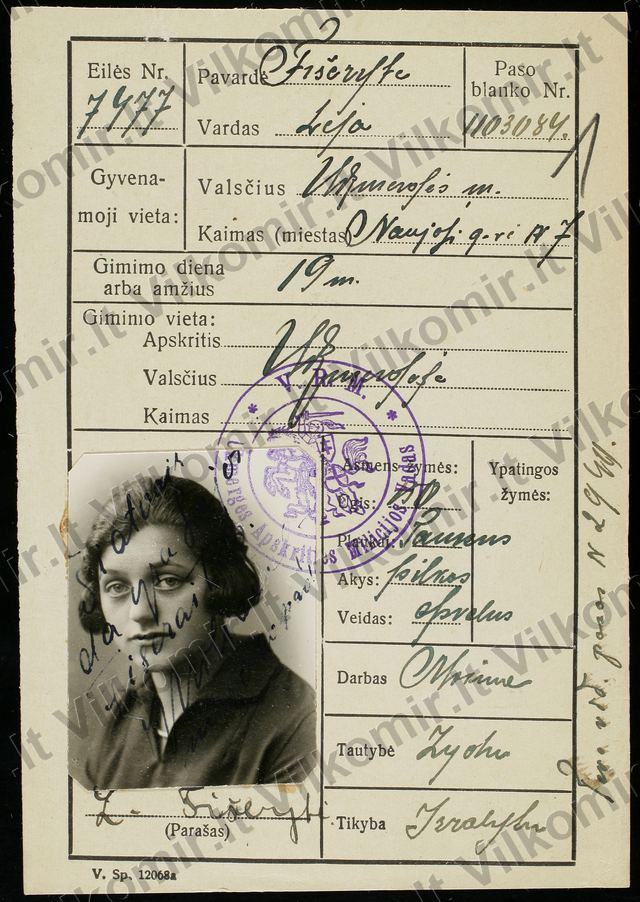 Eilės Nr.
7477
Pavardė Fišeryte
Vardas Leja
Paso
blanko Nr.
1103084.
Gyvena-
moji vieta:
Valsčius Ukmergės m.
Kaimas (miestas) Naujoji g-vė N 7
Gimimo diena
arba amžius
19 m.
Gimimo vieta:
Apskritis
Valsčius Ukmergėje
Kaimas
V. R. M.
Ukmergės Apskrities Milicijos Vadas
Asmens žymės:
Ūgis: 
Plaukai:
Akys: pilkos
Veidas: apvalus
Ypatingos
žymės:
Darbas
Tautybė Žydų
Tikyba Izraelitų
L. Fišerytė
(Parašas)
V. Sp. 12068a
Vilkomir.lt